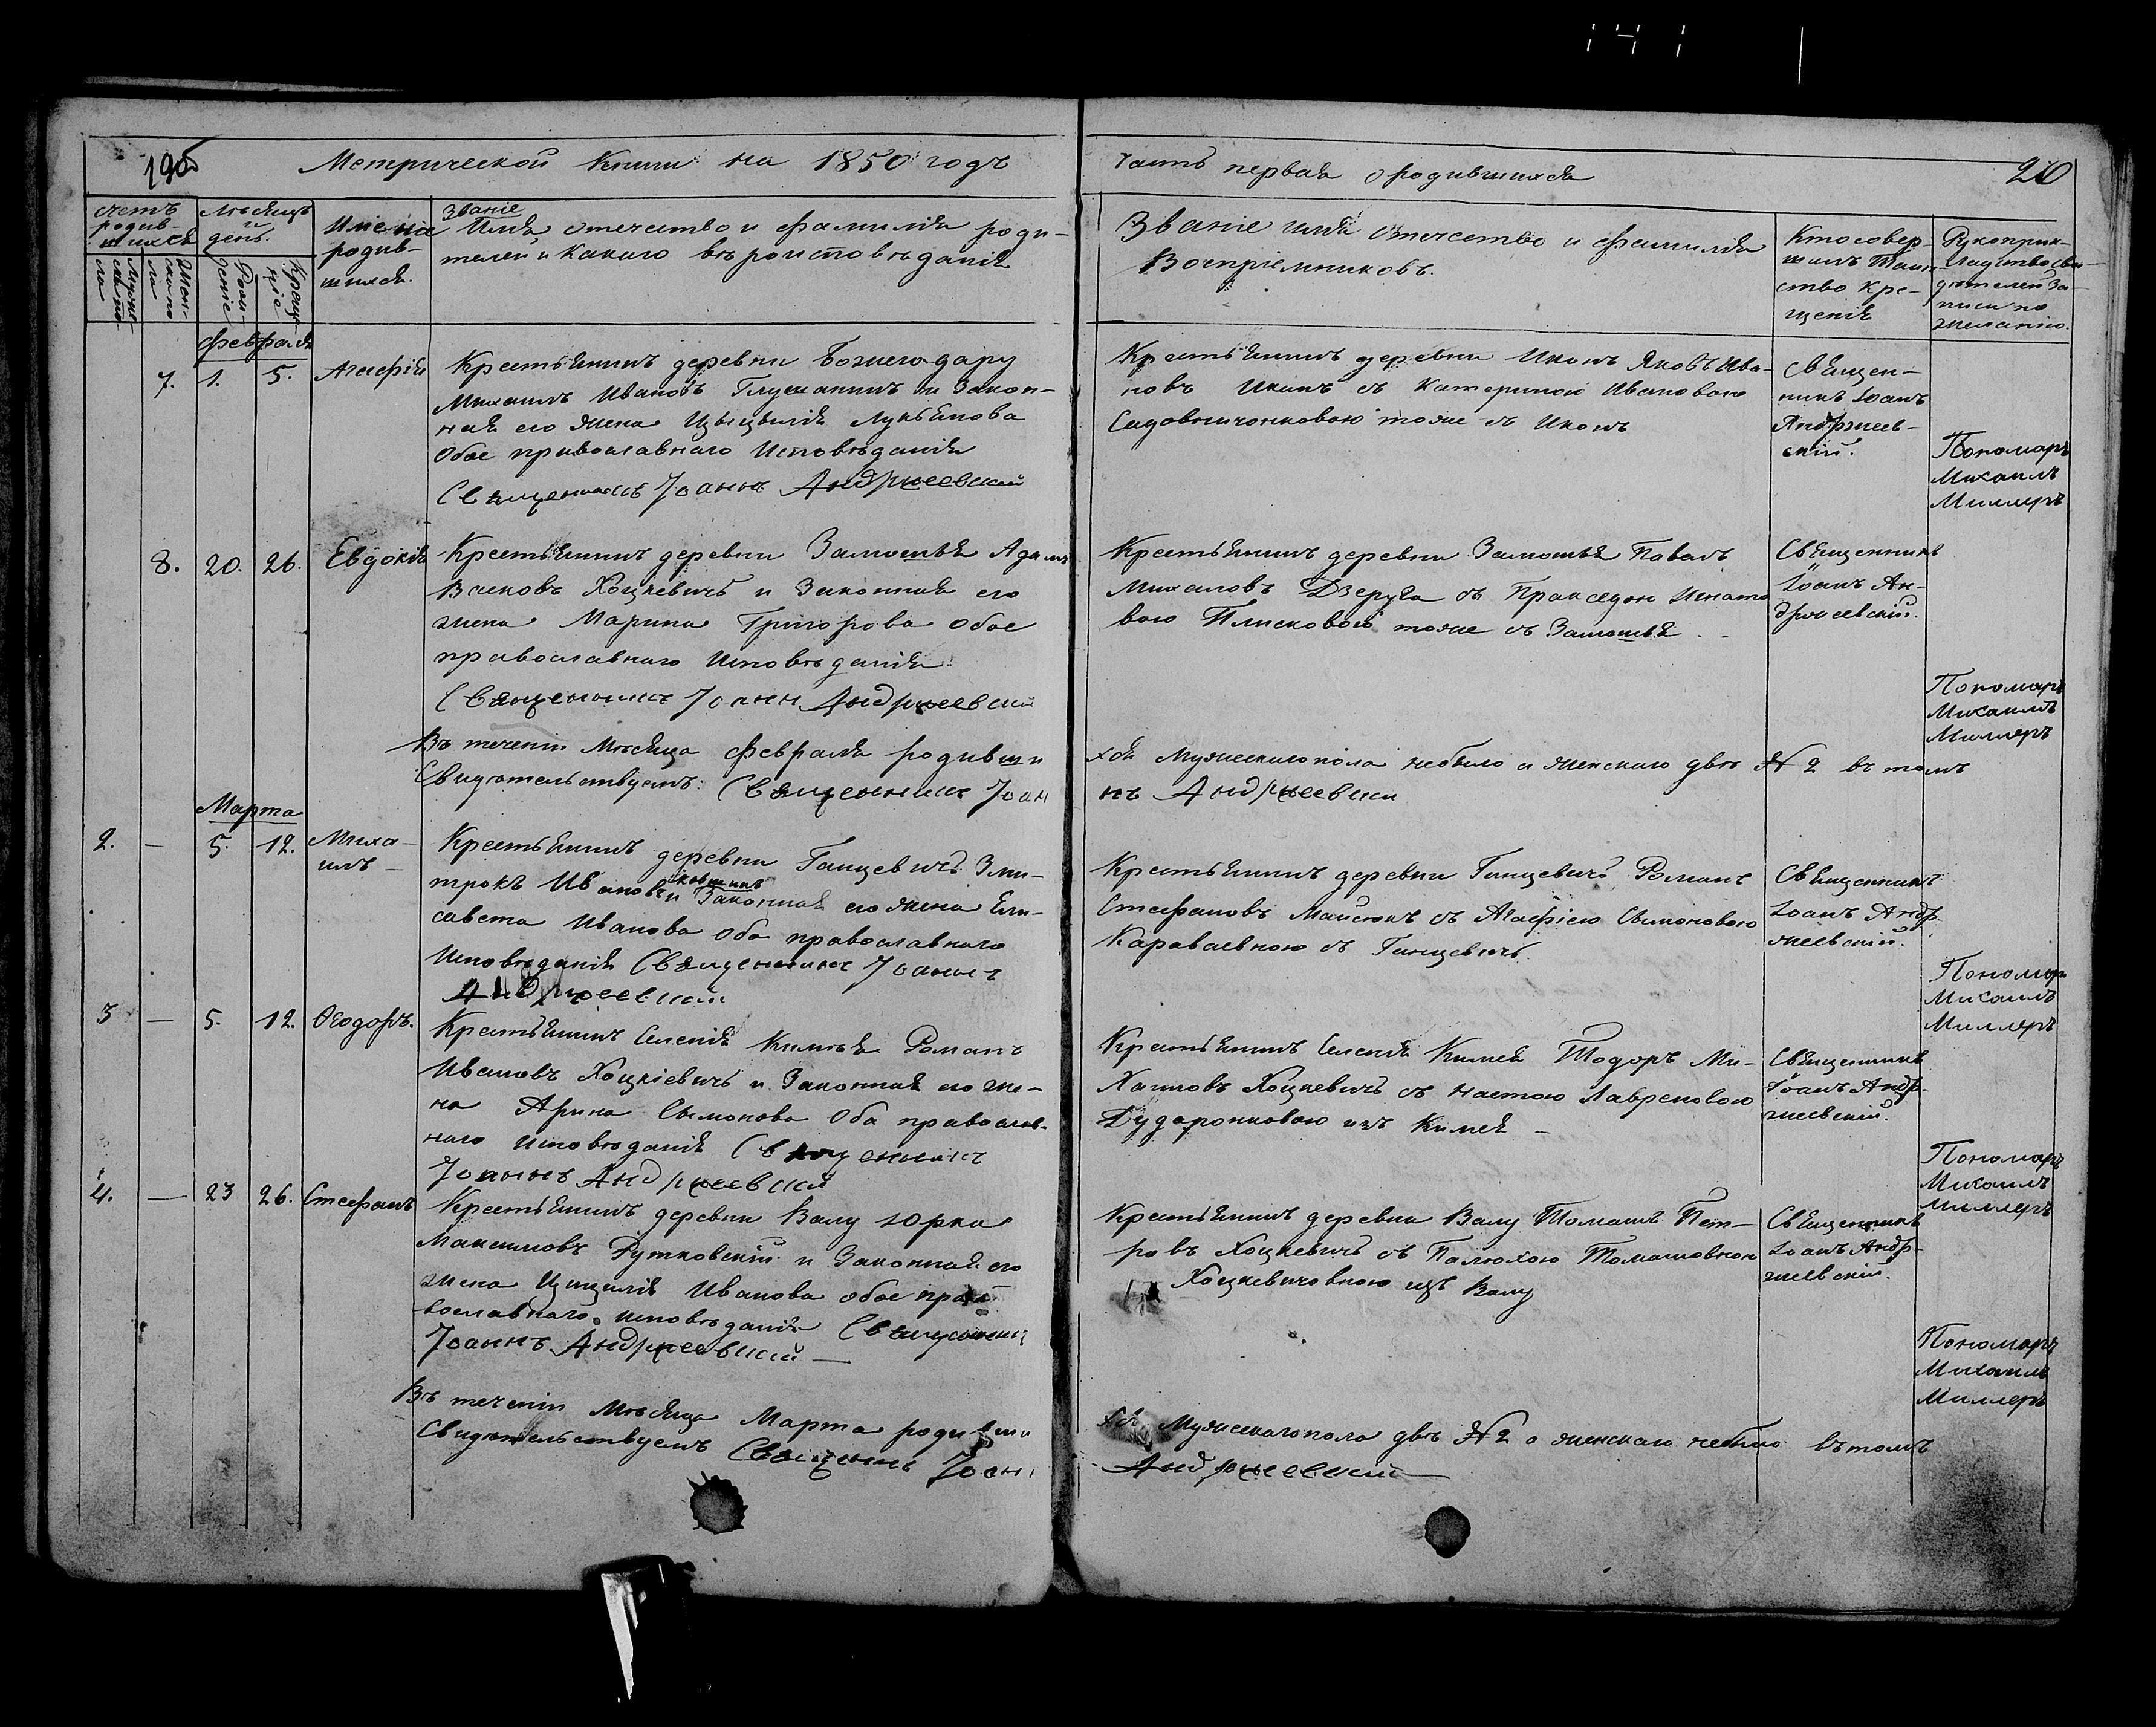 141
190б
Метрической Книги на 1850 годъ
часть первая о родившихся
20
счетъ родив-
шихся
Мужескаго пола
Женскаго пола
Мѣсяцъ
и
день.
Рождение
Крещеніе
Имение
родив-
шихся.
Званіе
Имя, отечество и фамилія роди-
телей и какаго вѣроисповѣданія
Званіе имя отечество и фамилія
Воспріемниковъ.
Кто совер-
шилъ Таин-
ство Кре-
щенія
Рукоприк-
ладство сви-
детелей за-
писи по
желанію.
февраля
7. 1. 5. Агафія
Крестьянинъ деревни Божегодару
Михаилъ Ивановъ Глушанинъ и Закон-
ная его жена Лукьянова
Обое православнаго Исповѣданія
Священникъ Іоаннъ Андржеевский
Крестьянинъ деревни Иконъ Яковъ Ива-
новъ съ Катериной Ивановою
тоже съ Иконъ
Священ-
никъ Іоанъ
Андржеев-
скій.
Пономаръ
Михаилъ
Миллеръ
8. 20. 26. Евдокія
Крестьянинъ деревни Замошья Адамъ
Васковъ Хоцкевичъ и Законная его
жена Марина Григорова обое
православнаго исповѣданія
Священникъ Іоанн Андржеевский
Крестьянинъ деревни Замошья Павалъ
Михаловъ Дзеруга съ Пракседою Игнато
вою Плисковою тоже съ Замошья
Священникъ
Іоанъ Ан-
држеевскій.
Пономаръ
Михаилъ
Миллеръ
Въ теченіи Мѣсяца февраля родивши
хся Мужескаго пола небыло а женскаго двѣ № 2 въ томъ
Свидѣтельствуемъ: Священникъ Іоан
нъ Андржеевски
Марта
2. — 5. 12. Миха-
илъ
Крестьянинъ деревни Ганцевичъ Зми-
трокъ Иванов и Законная его жена Ели-
савета Иванова Оба православнаго
Исповѣданія Священникъ Іоаннъ
Андржеевский
Крестьянинъ деревни Ганцевичъ Романъ
Стефановъ Майсюкъ съ Агафіею Сымоновою
Караваевною съ Ганцевичъ.
Священникъ
Іоанъ Андр-
жеевскій.
Пономаръ
Михаилъ
Миллеръ
3 — 5. 12. Ѳеодоръ.
Крестьянинъ Селенія Кимья Романъ
Ивановъ Хоцкіевичъ и Законная его же-
на Арина Сымонова Оба православ-
наго исповѣданія Священникъ
Іоаннъ Андржеевский
Крестьянинъ Селенія Кимея Тодоръ Ми-
хаиловъ Хоцкевичъ съ Настою Лавреновою
Дударонковою изъ Кимея —
Священникъ
Іоанъ Андр-
жеевский.
Пономаръ
Михаилъ
Миллеръ
4. — 23 26. Стефанъ
Крестьянинъ деревни Валу Юрка
Максимовъ Рутковскій и Законная его
жена Цицилія Иванова обое пра
вославнаго исповѣданія Священникъ
Іоаннъ Андржеевский —
Крестьянинъ деревни Валу Томашъ Пет-
ровъ Хоцкевичъ съ Палюхою Томашовною
Хоцкевичовною изъ Валу
Священникъ
Іоанъ Андр-
жеевскій.
Пономаръ
Михаилъ
Миллеръ
Въ теченіи Мѣсяца Марта родивши
хся Мужескаго пола двѣ № 2 а женскаго небыло въ томъ
Свидѣтельствуемъ Священнъ Іоан
Андржеевский